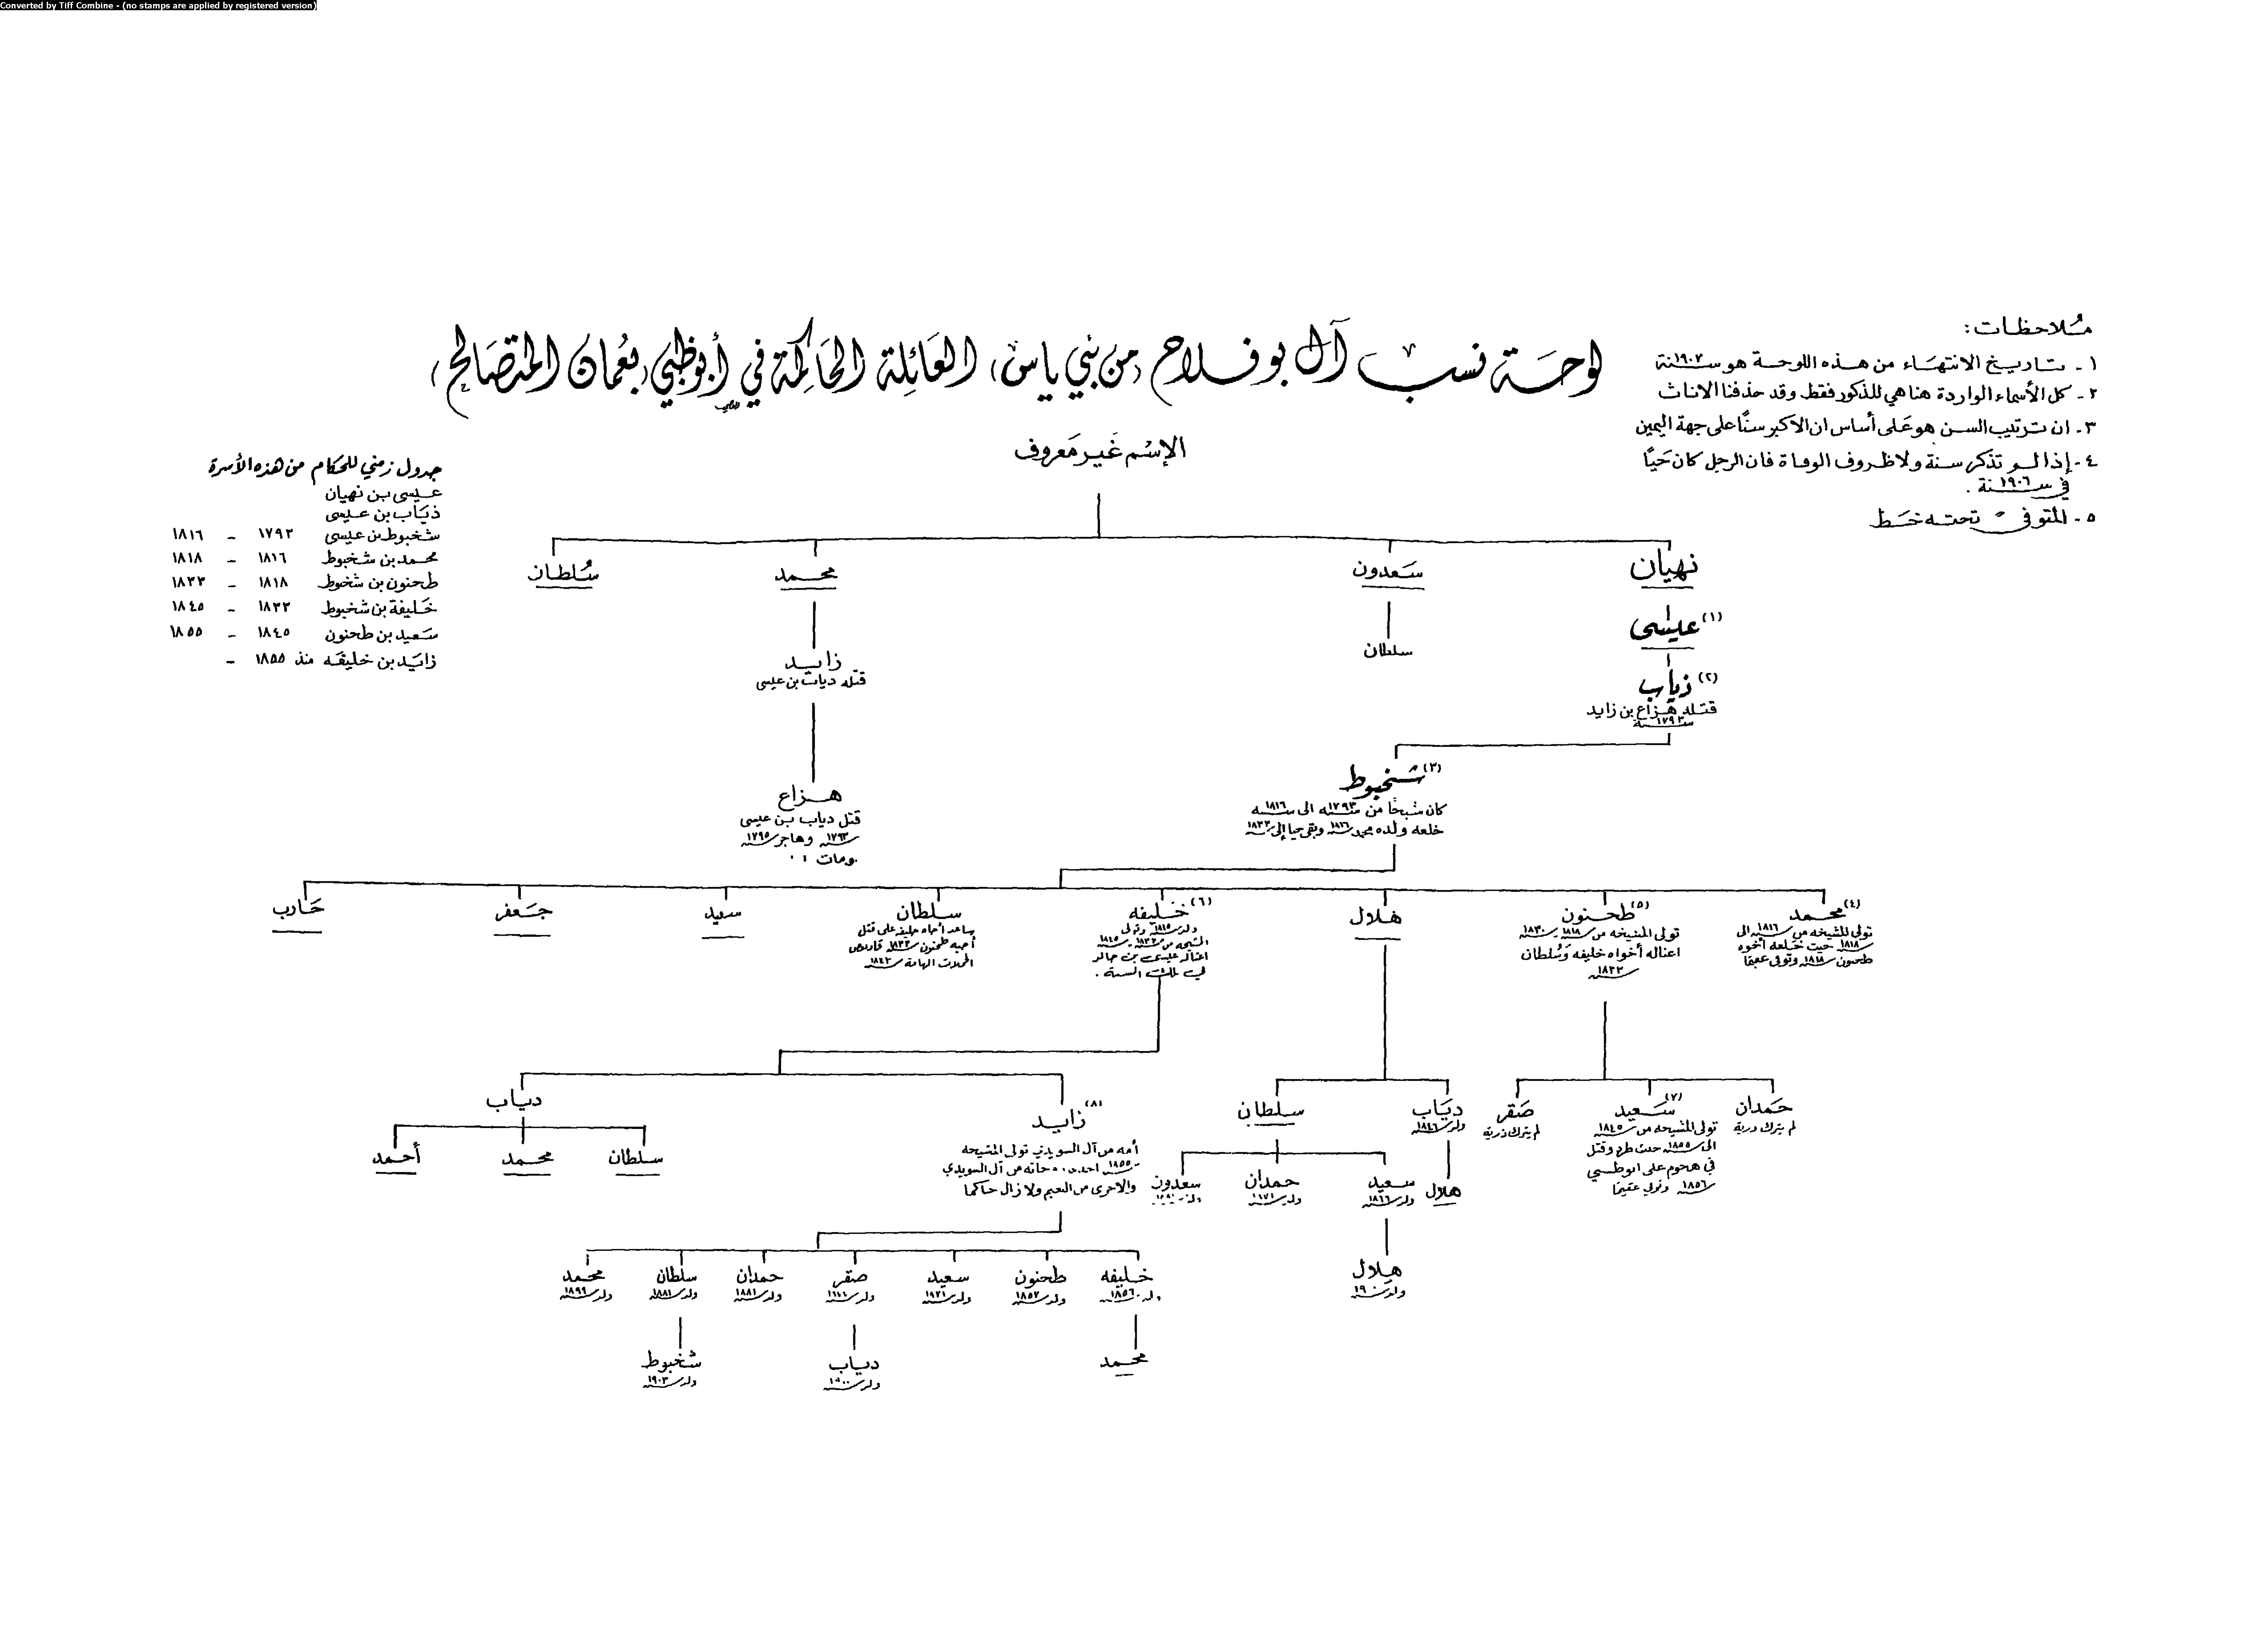 Converted by Tiff Combine - (no stamps are applied by registered version)
لوحة نسب آل بو فلاح (من بني ياس) العائلة الحاكمة في أبوظبي (بعمان المتصالح)
ملاحظات:
١- تاريخ الانتهاء من هذه اللوحة هو سنة ١٩٠٧
٢- كل الأسماء الواردة هنا هي للذكور فقط وقد حذفنا الاناث
٣- ان ترتيب السن هو على أساس ان الاكبر سنًّا على جهة اليمين
٤- إذا لم تذكر سنة ولا ظروف الوفاة فان الرجل كان حيًّا
في سنة ١٩٠٦ .
٥- المتوفي تحته خط
الإسم غير معروف
جدول زمني للحكام من هذه الأسرة
عيسى بن نهيان
ذياب بن عيسى
شخبوط بن عيسى ١٧٩٣ - ١٨١٦
محمد بن شخبوط ١٨١٦ - ١٨١٨
طحنون بن شخبوط ١٨١٨ - ١٨٣٣
خليفة بن شخبوط ١٨٣٣ - ١٨٤٥
سعيد بن طحنون ١٨٤٥ - ١٨٥٥
زايد بن خليفه منذ ١٨٥٥ -
نهيان
سعدون
محمد
سُلطان
(١) عيسى
سلطان
زايد
قتله دياب بن عيسى
(٢) ذياب
قتله هزاع بن زايد
سنة ١٧٩٣
(٣) شخبوط
كان شيخا من سنه ١٧٩٣ الى سنه ١٨١٦
خلعه ولده محمد سنه ١٨١٦ وبقي حيا إلى سنه ١٨٣٣
هزاع
قتل دياب بن عيسى
سنه ١٧٩٣ وهاجر سنه ١٧٩٥
ومات
(٤) محمد
تولى المشيخه من سنه ١٨١٦ الى
سنه ١٨١٨ حيث خلعه أخوه
طحنون سنه ١٨١٨ وتوفى عقيما
(٥) طحنون
تولى المشيخه من سنه ١٨١٨ - سنه ١٨٣٠
اغتاله أخواه خليفه وسُلطان
سنه ١٨٣٣
هلال
(٦) خليفه
ولد سنه ١٨١٥ وتولى
المشيخه من سنه ١٨٣٣ - سنه ١٨٤٥
اغتاله عيسى بن خالد
في تلك السنة .
سلطان
ساعد أخاه خليفه على قتل
أخيه طحنون سنه ١٨٣٣
الحملات الهامة سنه ١٨٤٣
سعيد
جعفر
حارب
حمدان
لم يترك درية
(٧) سعيد
تولى المشيخه من سنه ١٨٤٥
الى سنه ١٨٥٥ حيث طرد وقتل
في هجوم على ابوظبي
سنه ١٨٥٦ وتوفي عقيما
صقر
لم يترك ذرية
دياب
ولد سنه ١٨٤٦
سلطان
(٨) زايد
أمه من آل السويدي تولى المشيخه
سنه ١٨٥٥
والاخرى من النعيم ولا زال حاكما
دياب
سلطان
محمد
أحمد
هلال
سعيد
ولد سنه ١٨٦٦
حمدان
سعدون
هلال
خليفه
ولد سنه ١٨٥٦
طحنون
ولد سنه ١٨٥٧
سعيد
صقر
حمدان
ولد سنه ١٨٨١
سلطان
ولد سنه ١٨٨١
محمد
ولد سنه ١٨٩٩
محمد
دياب
شخبوط
ولد سنه ١٩٠٣